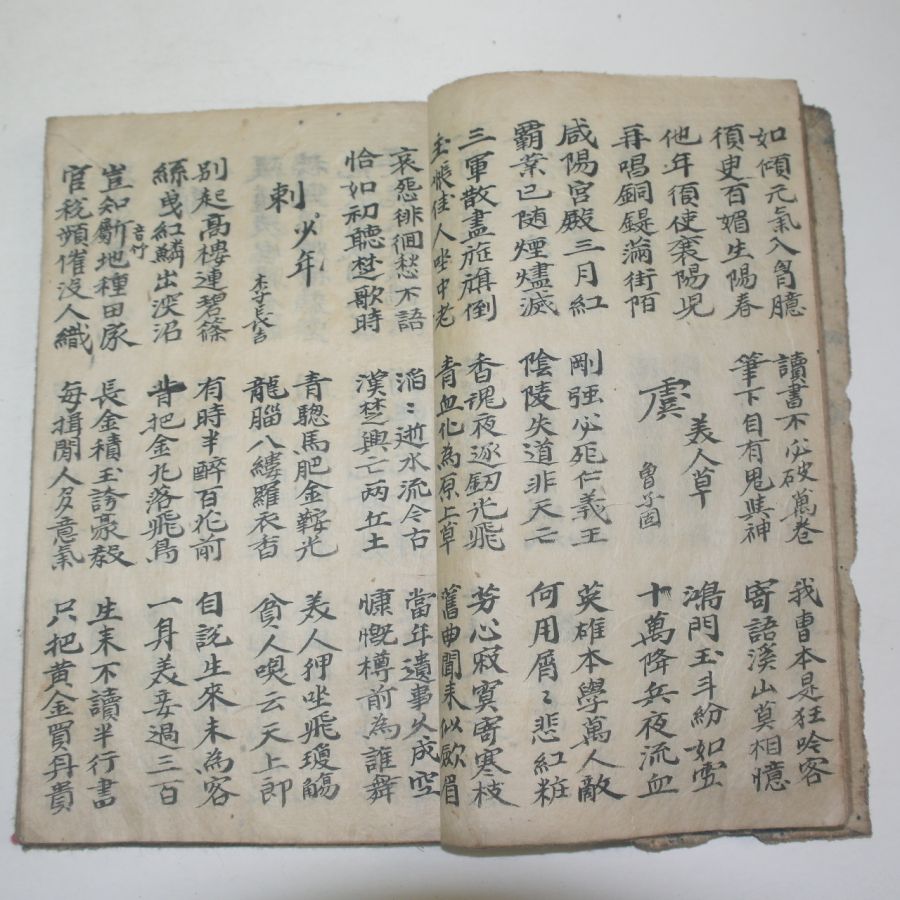 如傾元氣入胷臆
須臾百媚生陽春
讀書不必破萬卷
筆下自有鬼與神
我曹本是狂吟客
寄語溪山莫相憶
他年須使襄陽兒
再唱銅鍉滿街陌
虞美人草
曾子固
鴻門玉斗紛如雪
十萬降兵夜流血
咸陽宮殿三月紅
覇業已随煙燼滅
剛强必死仁義王
陰陵失道非天亡
英雄本學萬人敵
何用屑〻悲紅粧
三軍散盡旌旗倒
玉帳佳人坐中老
香魂夜逐釰光飛
青血化為原上草
芳心寂寞寄寒枝
舊曲聞来似歛眉
哀怨徘徊愁不語
恰如初聽楚歌時
滔〻逝水流今古
漢楚興亡兩丘土
當年遺事久成空
慷慨樽前為誰舞
刺少年
李長吉
青驄馬肥金鞍光
龍腦入縷羅衣香
美人狎坐飛瓊觴
貧人喚云天上郎
別起高樓連碧篠
絲曳紅鱗出深沼
有時半醉百花前
背把金丸落飛鳥
自說生來未為客
一身美妾過三百
豈知斸地種田家
音竹
官稅頻催沒人織
長金積玉誇豪毅
每揖閒人多意氣
生来不讀半行書
只把黄金買身貴